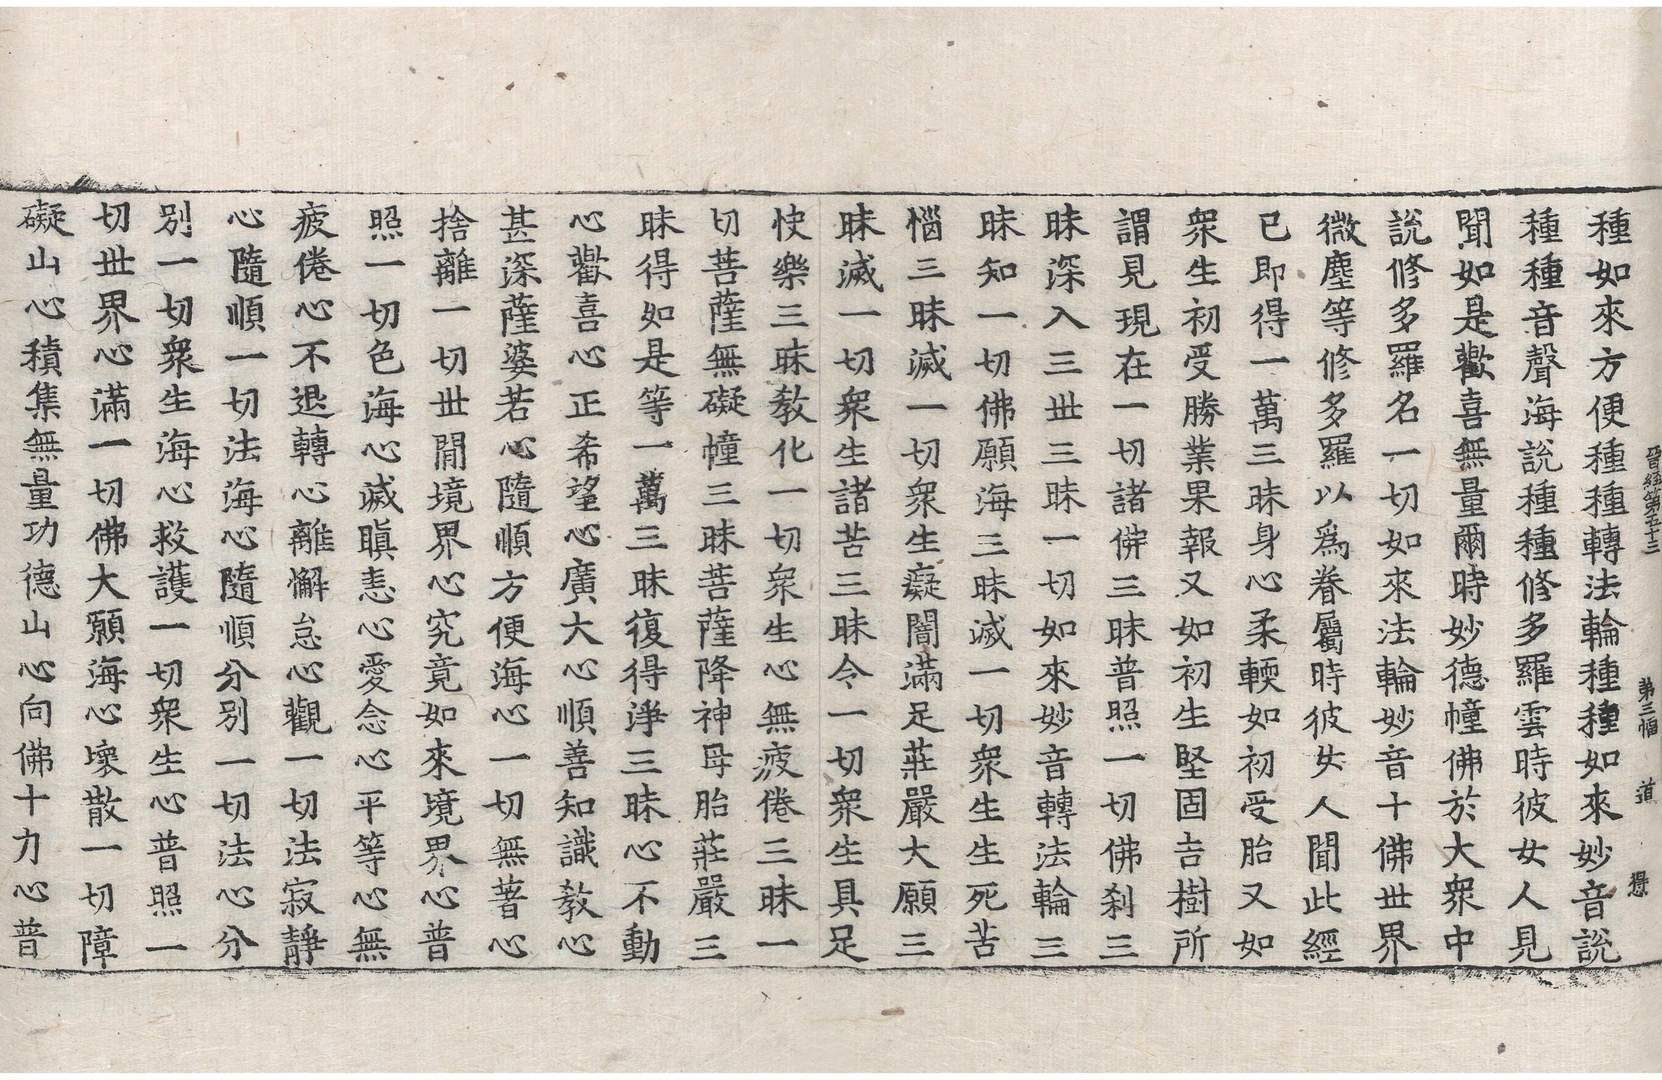 晉經第五十三　第三幅　道
種如來方便種種轉法輪種種如來妙音說
種種音聲海說種種修多羅雲時彼女人見
聞如是歡喜無量爾時妙德幢佛於大衆中
說修多羅名一切如來法輪妙音十佛世界
微塵等修多羅以爲眷屬時彼女人聞此經
已即得一萬三昧身心柔輭如初受胎又如
衆生初受勝業果報又如初生堅固吉樹所
謂見現在一切諸佛三昧普照一切佛刹三
昧深入三世三昧一切如來妙音轉法輪三
昧知一切佛願海三昧滅一切衆生生死苦
惱三昧滅一切衆生癡闇滿足莊嚴大願三
昧滅一切衆生諸苦三昧令一切衆生具足
快樂三昧敎化一切衆生心無疲倦三昧一
切菩薩無礙幢三昧菩薩降神母胎莊嚴三
昧得如是等一萬三昧復得淨三昧心不動
心歡喜心正希望心廣大心順善知識敎心
甚深薩婆若心隨順方便海心一切無著心
捨離一切世間境界心究竟如來境界心普
照一切色海心滅瞋恚心愛念心平等心無
疲倦心不退轉心離懈怠心觀一切法寂靜
心隨順一切法海心隨順分別一切法心分
別一切衆生海心救護一切衆生心普照一
切世界心滿一切佛大願海心壞散一切障
礙山心積集無量功德山心向佛十力心普